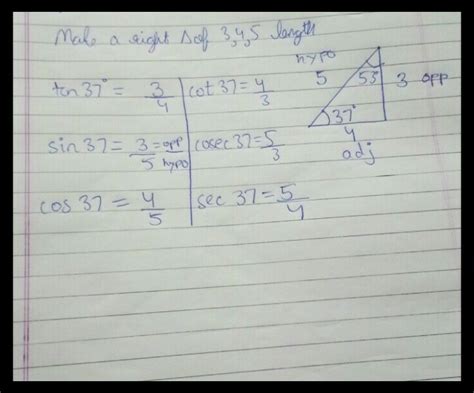 Make a right Δ of 3,4,5 length
tan 37° = 3/4
cot 37 = 4/3
sin 37 = 3/5 = opp/hypo
cosec 37 = 5/3
cos 37 = 4/5
sec 37 = 5/4
hypo
5
53
3 opp
37°
4
adj